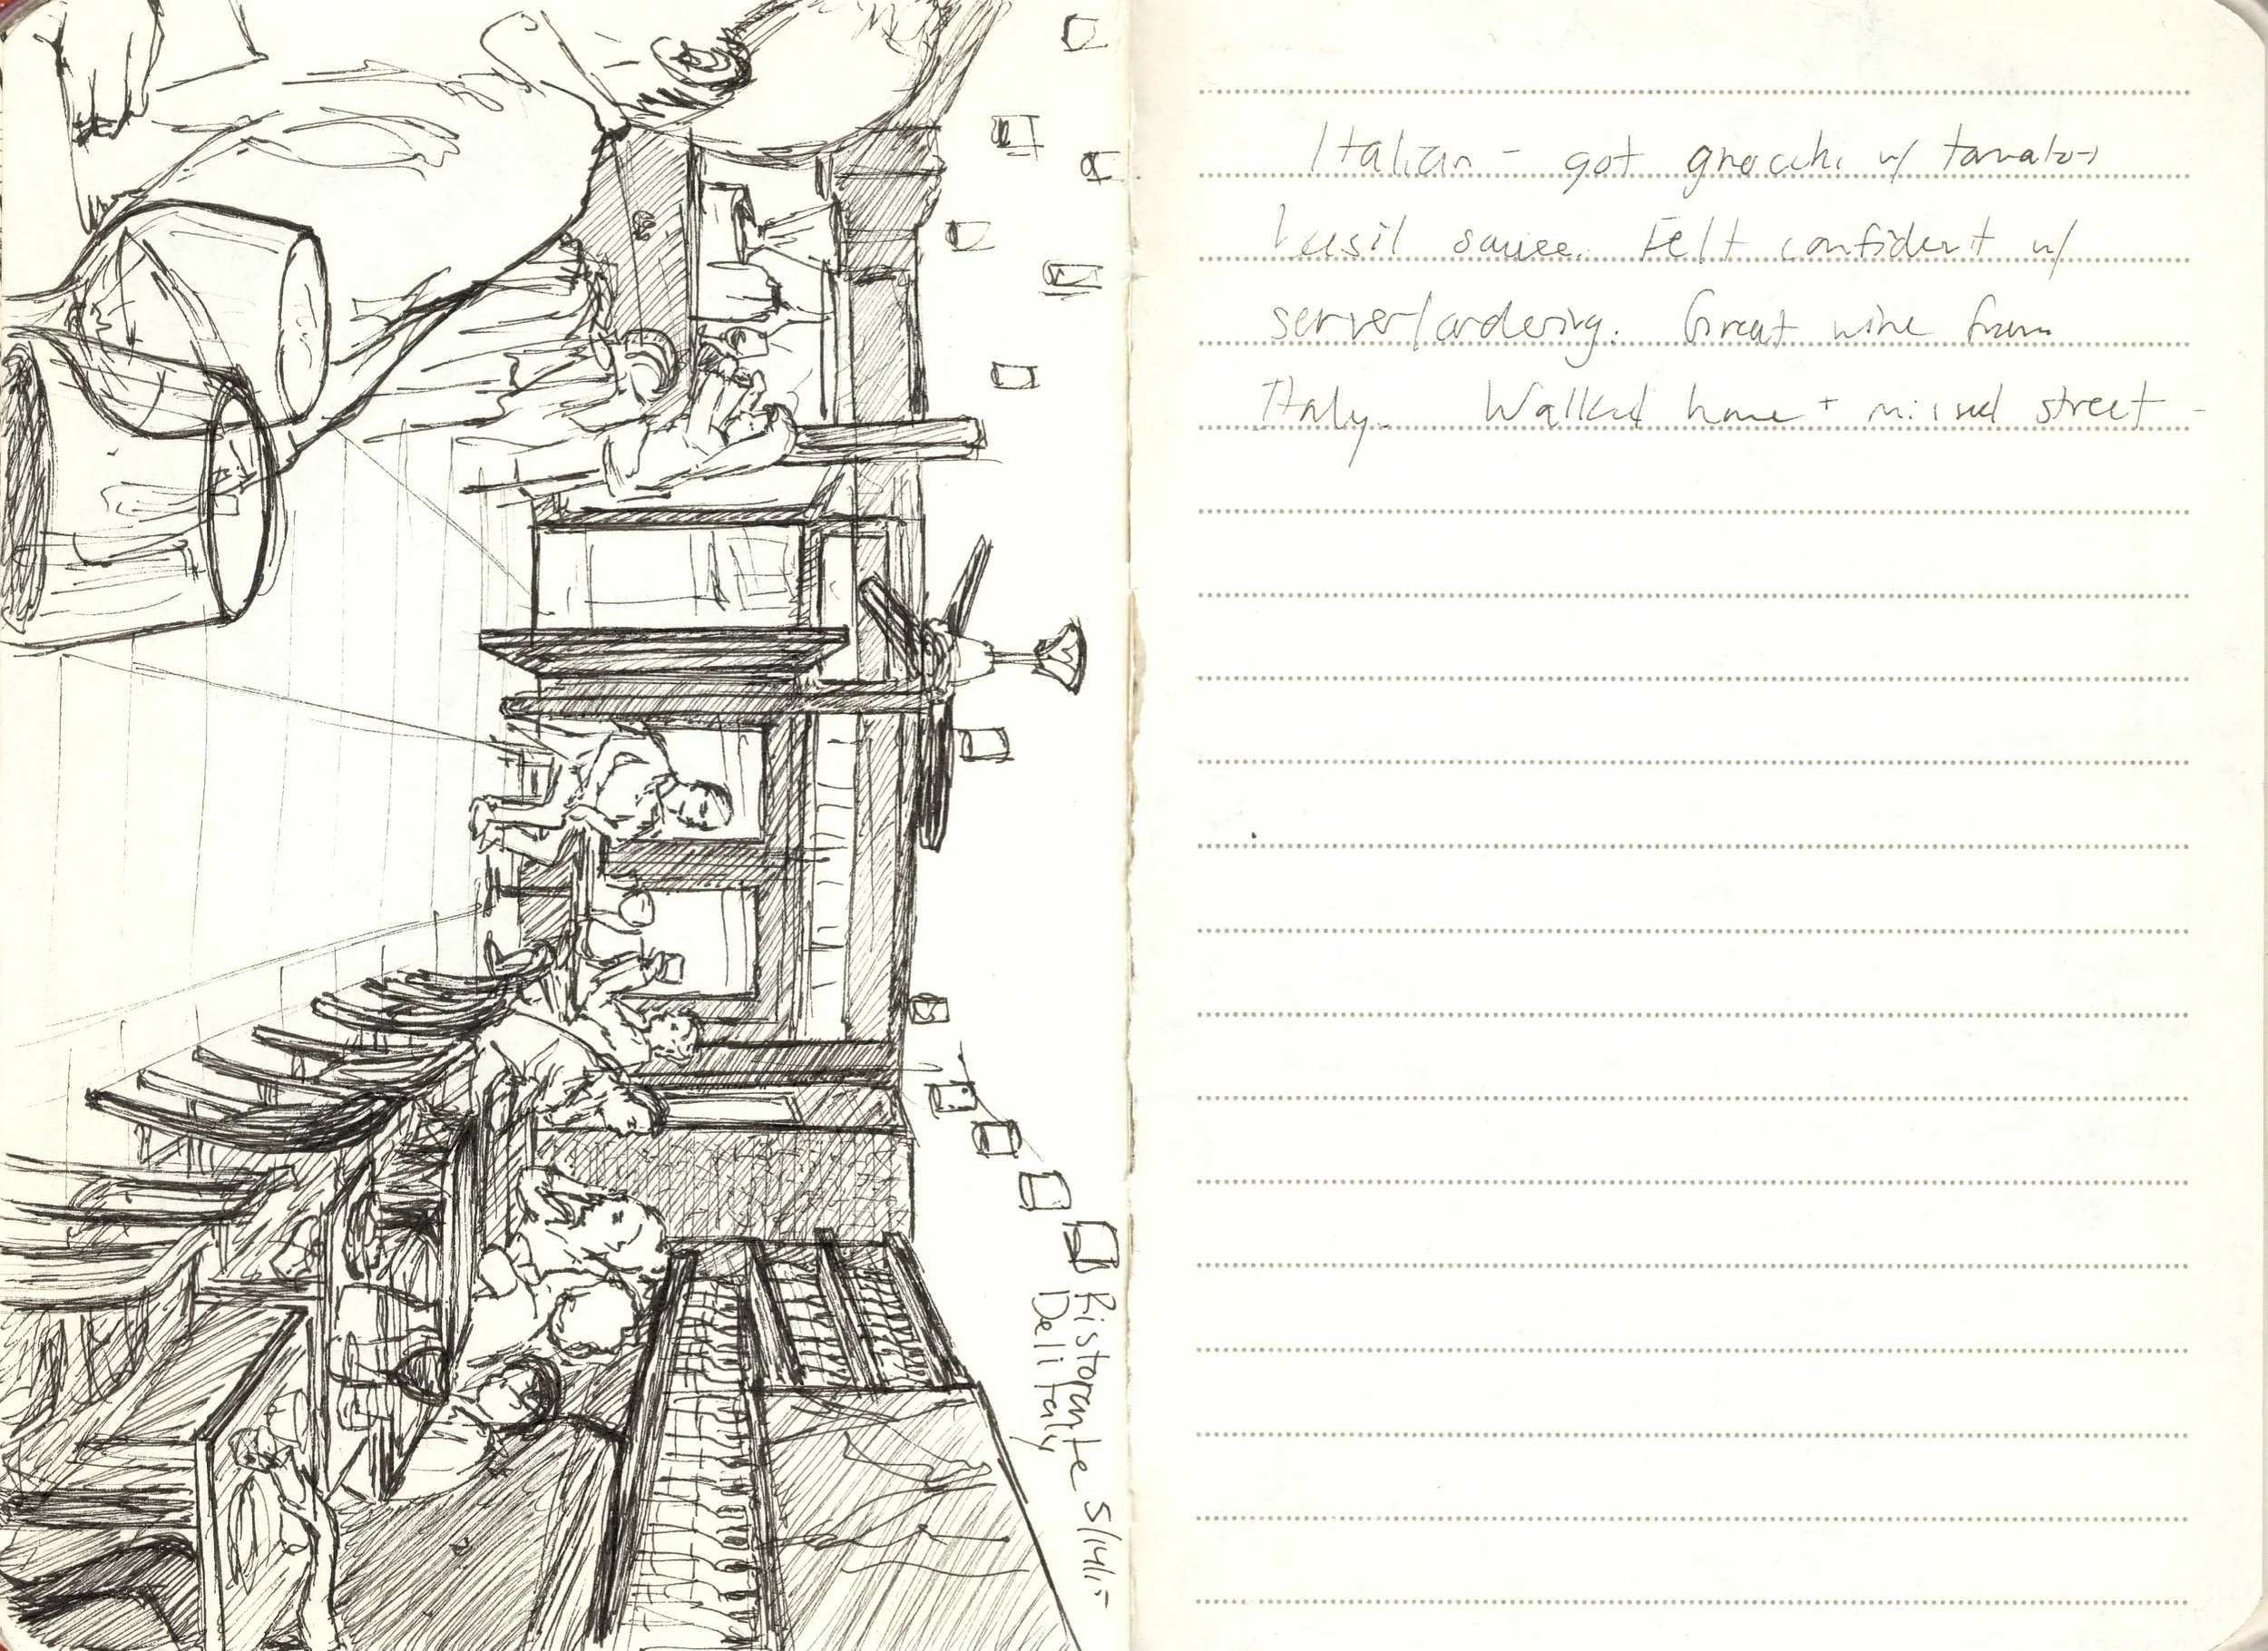 Italian - got gnocchi w/ tomato
basil sauce. Felt confident w/
server/ordering. Great wine from
Italy. Walked home + missed street -
Ristorante 5/14/15
Deli Italy